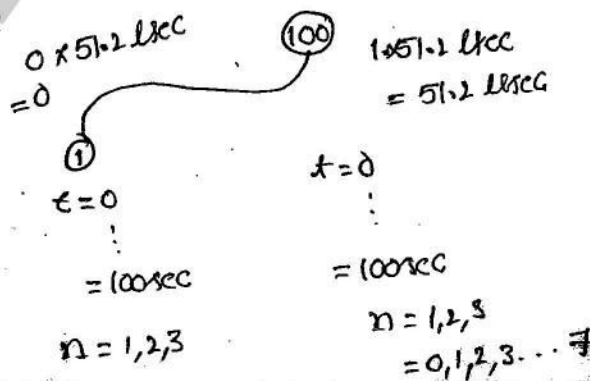 0 x 51.2 µsec
= 0
100
1x51.2 µsec
= 51.2 µsec
1
t = 0
⋮
= 100sec
n = 1,2,3
t = 0
⋮
= 100sec
n = 1,2,3
= 0,1,2,3...